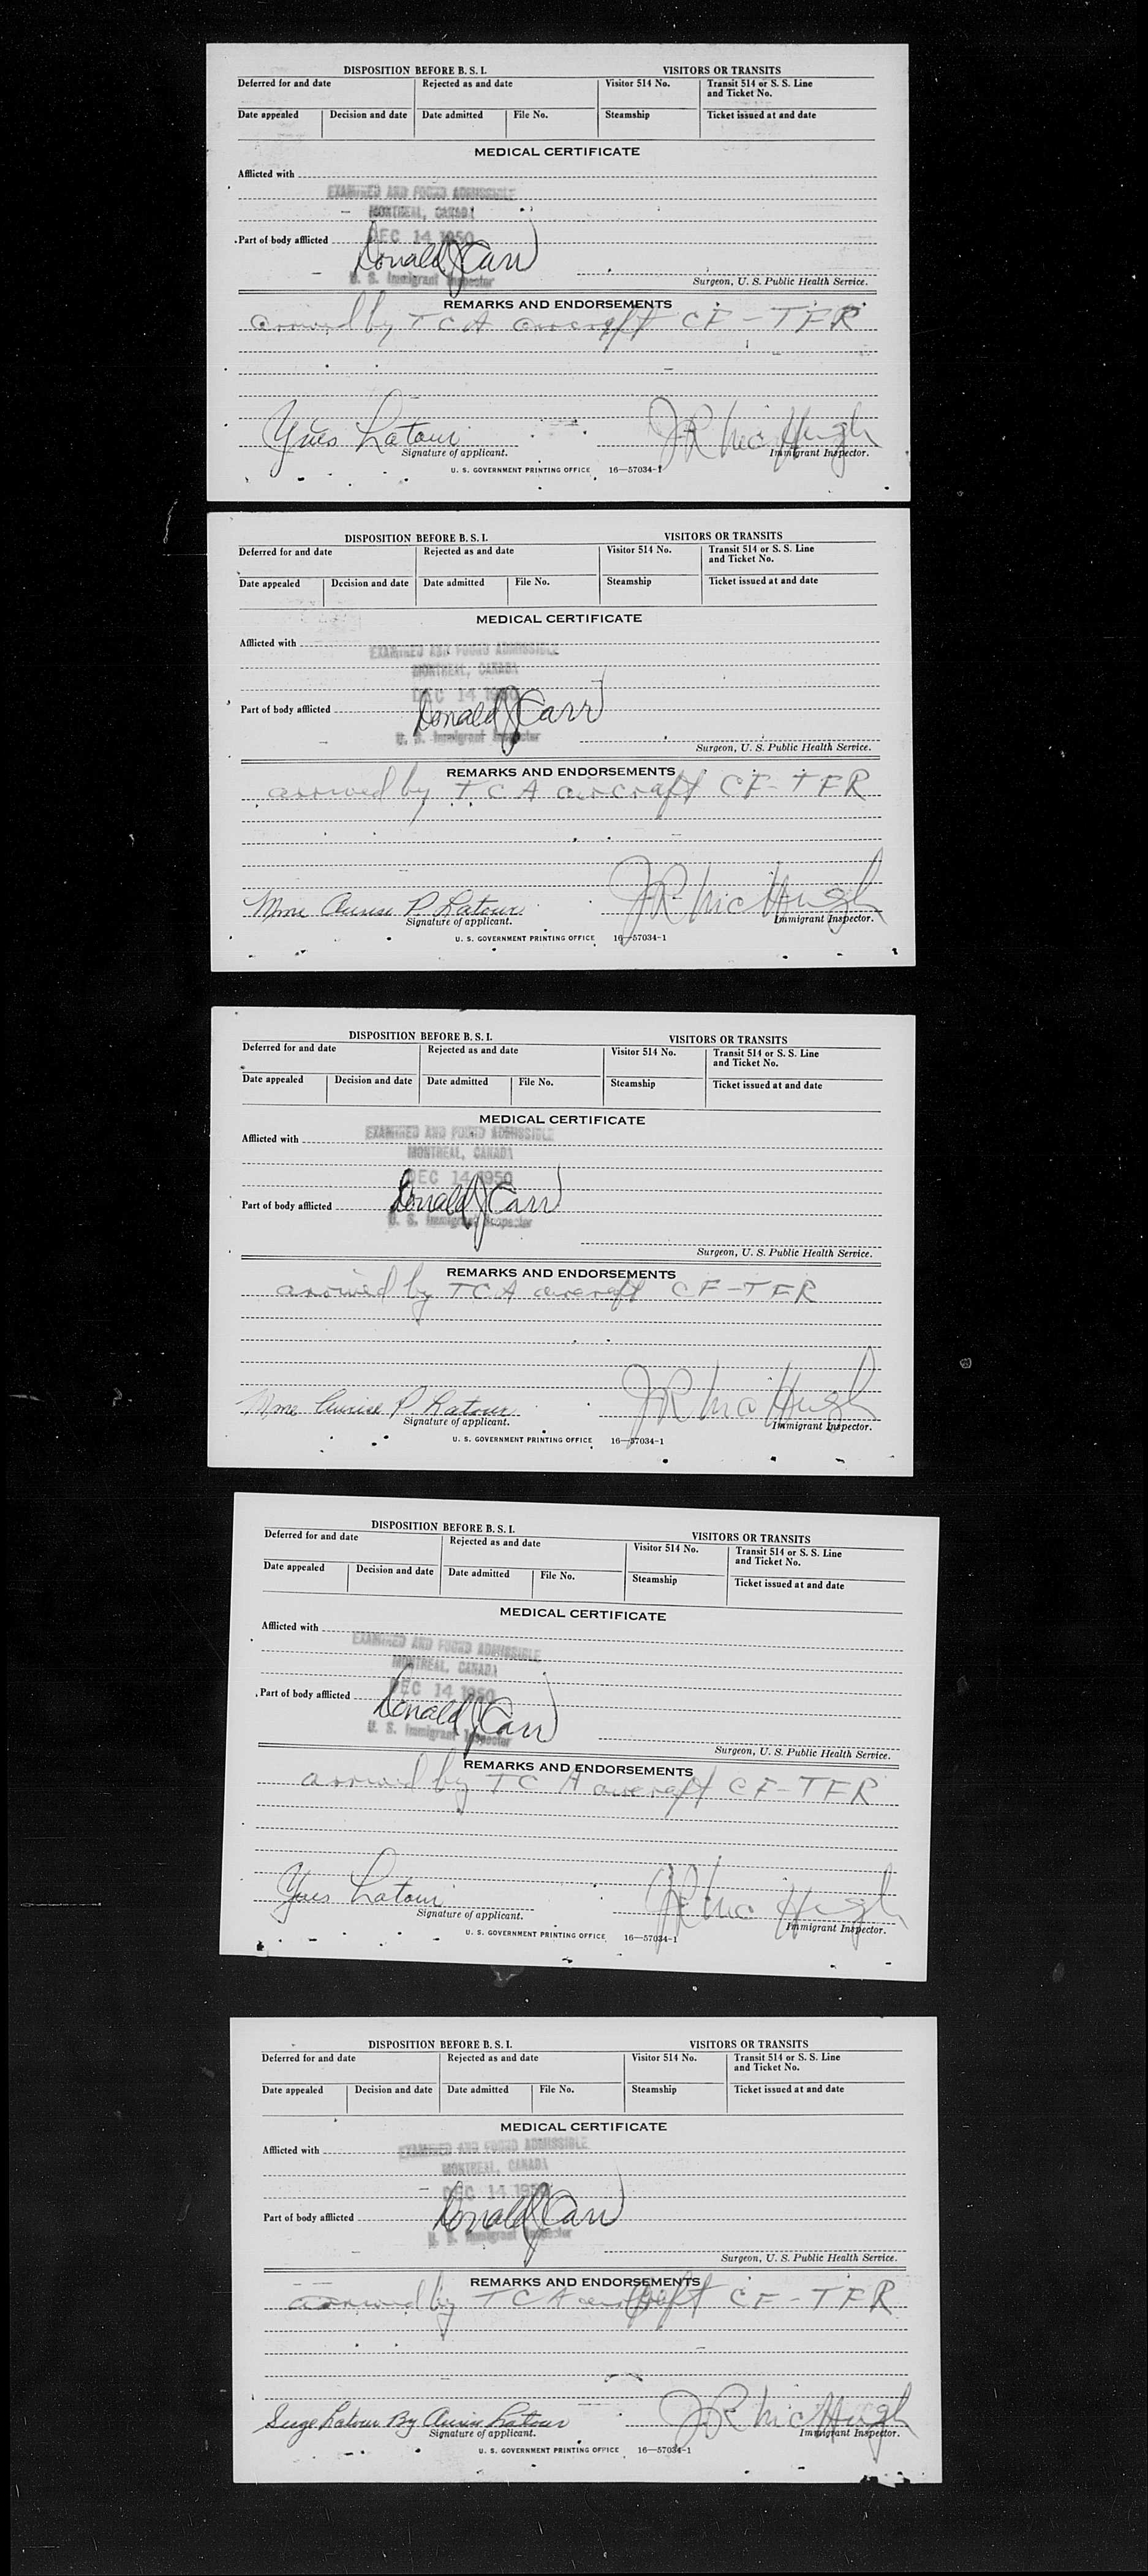 DISPOSITION BEFORE B. S. I. VISITORS OR TRANSITS
Deferred for and date Rejected as and date Visitor 514 No. Transit 514 or S. S. Line and Ticket No.
Date appealed Decision and date Date admitted File No. Steamship Ticket issued at and date
MEDICAL CERTIFICATE
Afflicted with
EXAMINED AND FOUND ADMISSIBLE
MONTREAL, CANADA
DEC 14 1950
Part of body afflicted
Donald J Carr
U. S. Immigrant Inspector
Surgeon, U. S. Public Health Service.
REMARKS AND ENDORSEMENTS
arrived by TCA aircraft CF-TFR
Yves Latour J R McHugh
Signature of applicant. Immigrant Inspector.
U. S. GOVERNMENT PRINTING OFFICE 16—57034-1
DISPOSITION BEFORE B. S. I. VISITORS OR TRANSITS
Deferred for and date Rejected as and date Visitor 514 No. Transit 514 or S. S. Line and Ticket No.
Date appealed Decision and date Date admitted File No. Steamship Ticket issued at and date
MEDICAL CERTIFICATE
Afflicted with
EXAMINED AND FOUND ADMISSIBLE
MONTREAL, CANADA
DEC 14 1950
Part of body afflicted
Donald J Carr
U. S. Immigrant Inspector
Surgeon, U. S. Public Health Service.
REMARKS AND ENDORSEMENTS
arrived by TCA aircraft CF-TFR
Mme P. Latour J R McHugh
Signature of applicant. Immigrant Inspector.
U. S. GOVERNMENT PRINTING OFFICE 16—57034-1
DISPOSITION BEFORE B. S. I. VISITORS OR TRANSITS
Deferred for and date Rejected as and date Visitor 514 No. Transit 514 or S. S. Line and Ticket No.
Date appealed Decision and date Date admitted File No. Steamship Ticket issued at and date
MEDICAL CERTIFICATE
Afflicted with
EXAMINED AND FOUND ADMISSIBLE
MONTREAL, CANADA
DEC 14 1950
Part of body afflicted
Donald J Carr
U. S. Immigrant Inspector
Surgeon, U. S. Public Health Service.
REMARKS AND ENDORSEMENTS
arrived by TCA aircraft CF-TFR
Mme P Latour J R McHugh
Signature of applicant. Immigrant Inspector.
U. S. GOVERNMENT PRINTING OFFICE 16—57034-1
DISPOSITION BEFORE B. S. I. VISITORS OR TRANSITS
Deferred for and date Rejected as and date Visitor 514 No. Transit 514 or S. S. Line and Ticket No.
Date appealed Decision and date Date admitted File No. Steamship Ticket issued at and date
MEDICAL CERTIFICATE
Afflicted with
EXAMINED AND FOUND ADMISSIBLE
MONTREAL, CANADA
DEC 14 1950
Part of body afflicted
Donald J Carr
U. S. Immigrant Inspector
Surgeon, U. S. Public Health Service.
REMARKS AND ENDORSEMENTS
arrived by TCA aircraft CF-TFR
Yves Latour J R McHugh
Signature of applicant. Immigrant Inspector.
U. S. GOVERNMENT PRINTING OFFICE 16—57034-1
DISPOSITION BEFORE B. S. I. VISITORS OR TRANSITS
Deferred for and date Rejected as and date Visitor 514 No. Transit 514 or S. S. Line and Ticket No.
Date appealed Decision and date Date admitted File No. Steamship Ticket issued at and date
MEDICAL CERTIFICATE
Afflicted with
EXAMINED AND FOUND ADMISSIBLE
MONTREAL, CANADA
DEC 14 1950
Part of body afflicted
Donald J Carr
U. S. Immigrant Inspector
Surgeon, U. S. Public Health Service.
REMARKS AND ENDORSEMENTS
arrived by TCA aircraft CF-TFR
Latour By Latour J R McHugh
Signature of applicant. Immigrant Inspector.
U. S. GOVERNMENT PRINTING OFFICE 16—57034-1